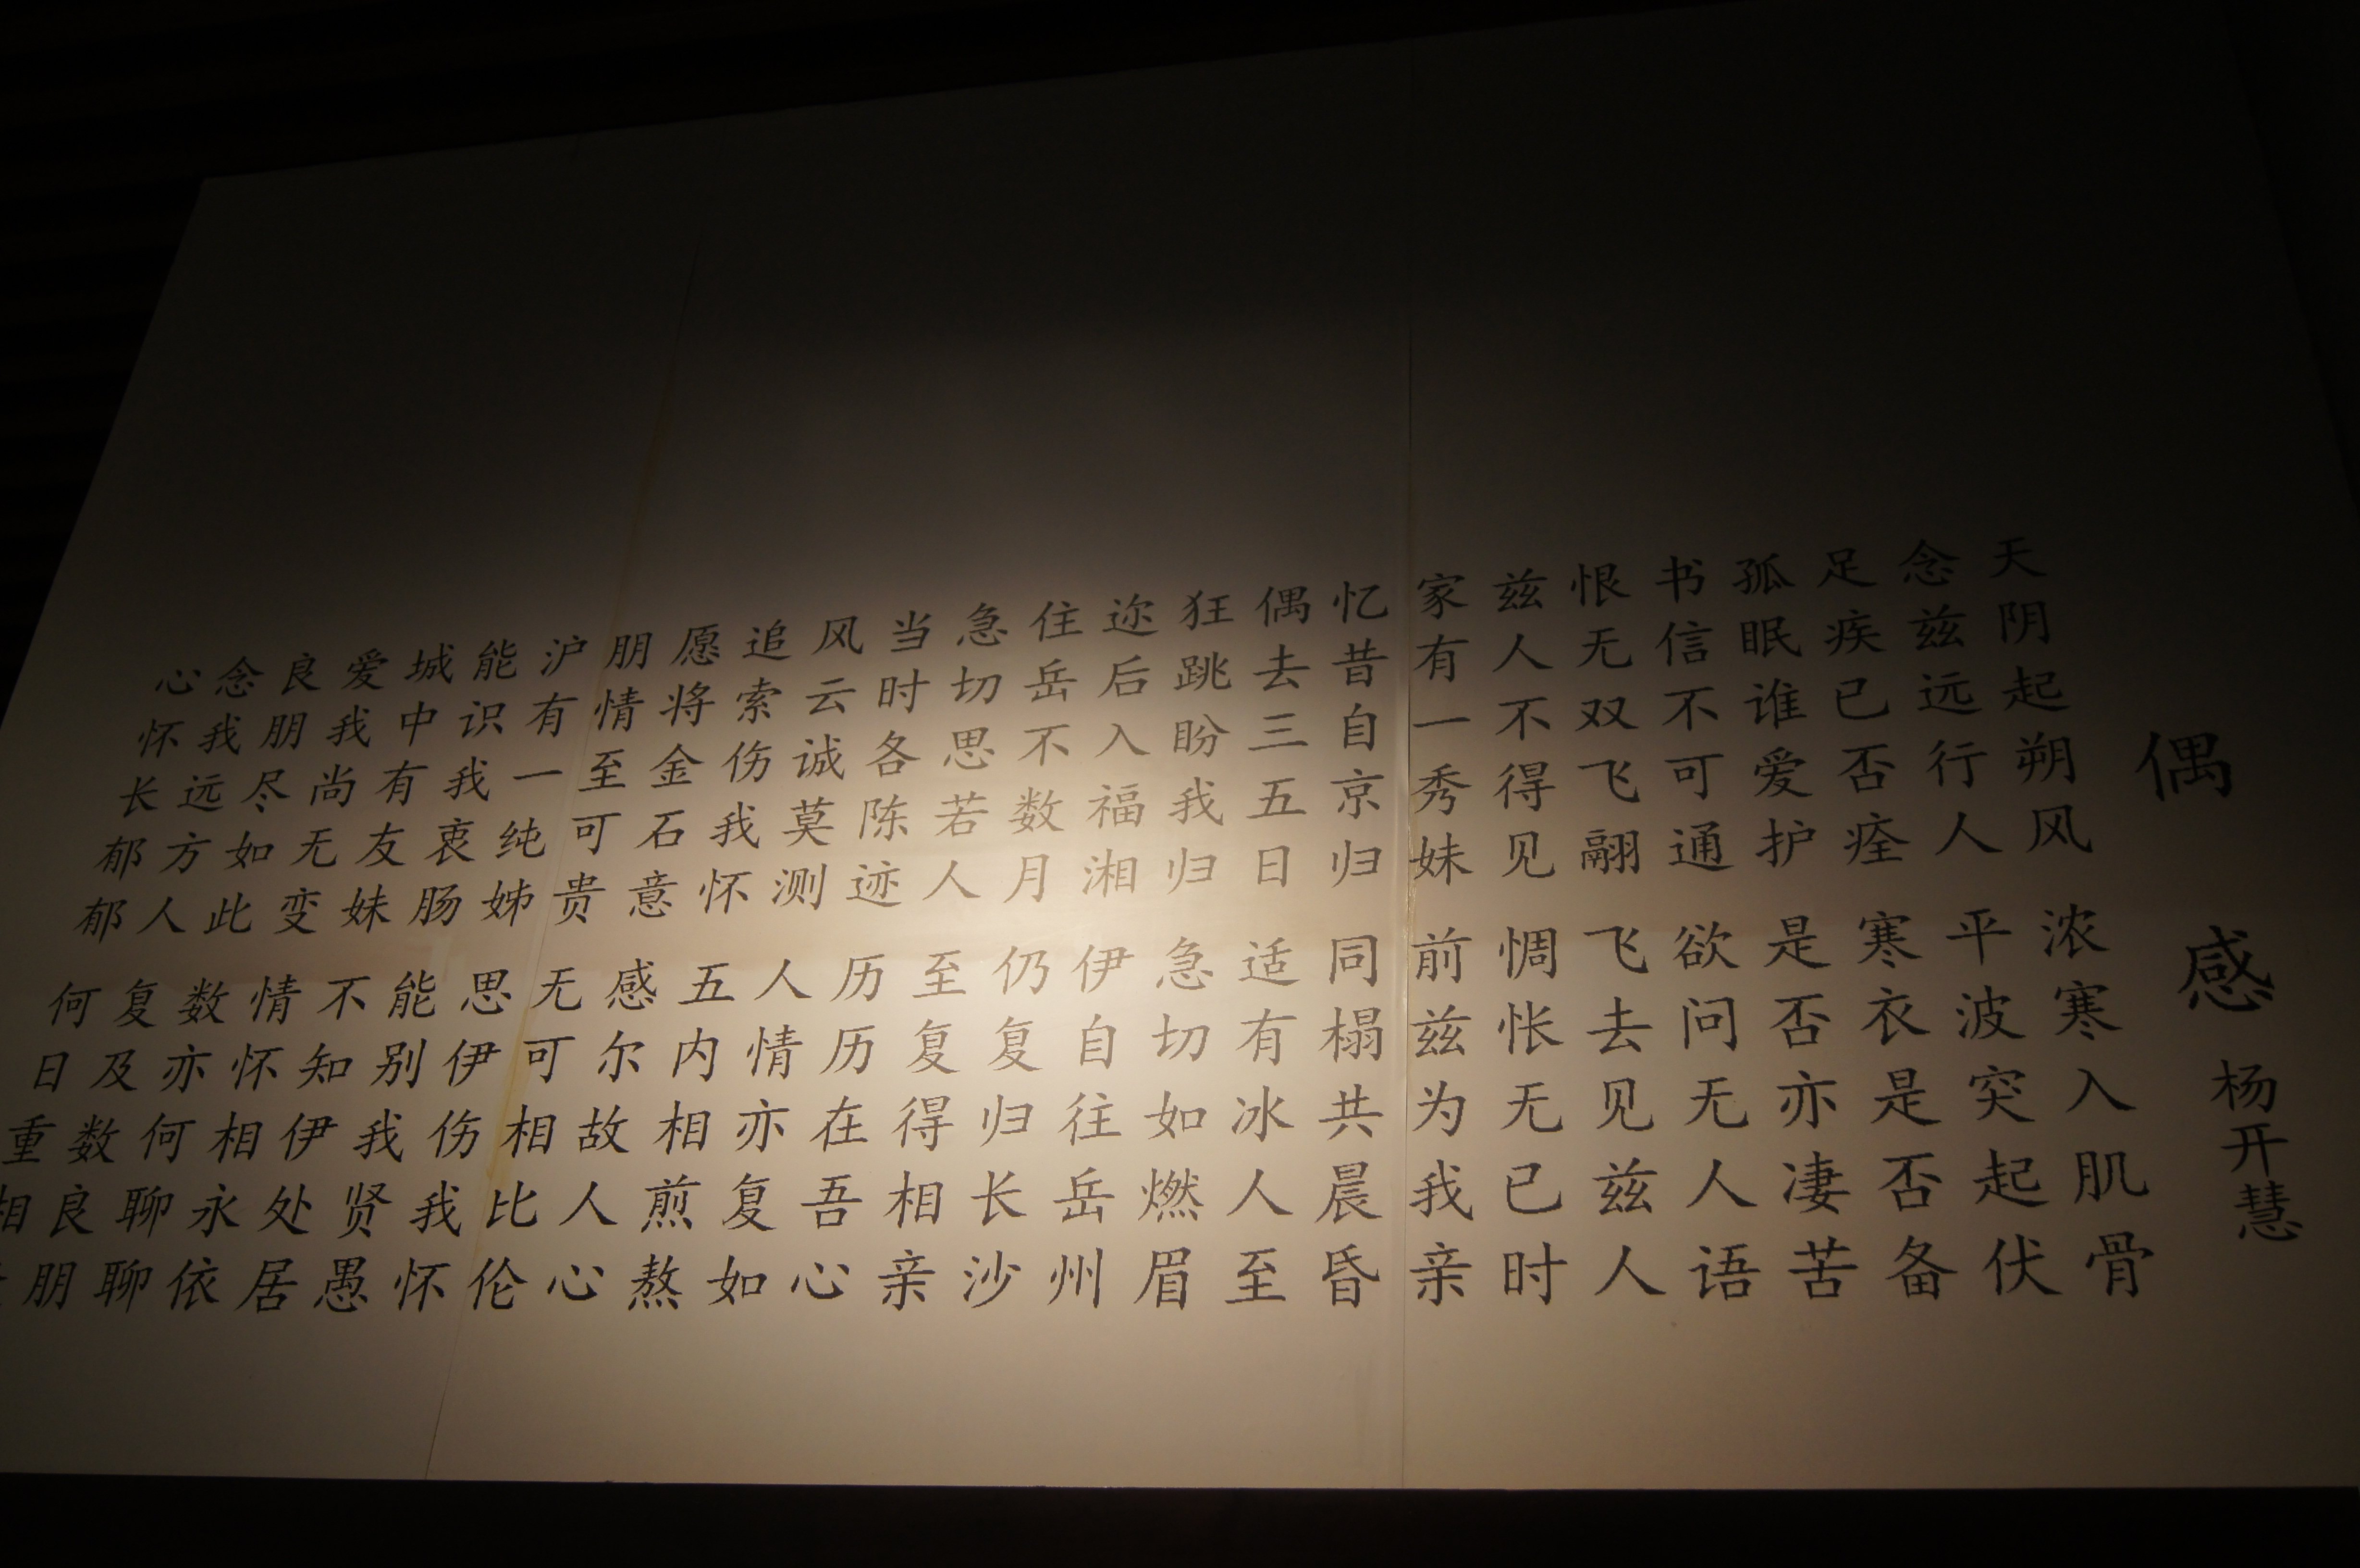 偶感 杨开慧
天阴起朔风 浓寒入肌骨
念兹远行人 平波突起伏
足疾已否痊 寒衣是否备
孤眠谁爱护 是否亦凄苦
书信不可通 欲问无人语
恨无双飞翮 飞去见兹人
兹人不得见 惆怅无已时
家有一秀妹 前兹为我亲
忆昔自京归 同榻共晨昏
偶去三五日 适有冰人至
狂跳盼我归 急切如燃眉
迩后入福湘 伊自往岳州
住岳不数月 仍复归长沙
急切思若人 至复得相亲
当时各陈迹 历历在吾心
风云诚莫测 人情亦复如
追索伤我怀 五内相煎熬
愿将金石意 感尔故人心
朋情至可贵 无可相比伦
沪有一纯姊 思伊伤我怀
能识我衷肠 能别我贤愚
城中有友妹 不知伊处居
爱我尚无变 情怀相永依
良朋尽如此 数亦何聊聊
念我远方人 复及数良朋
心怀长郁郁 何日重相